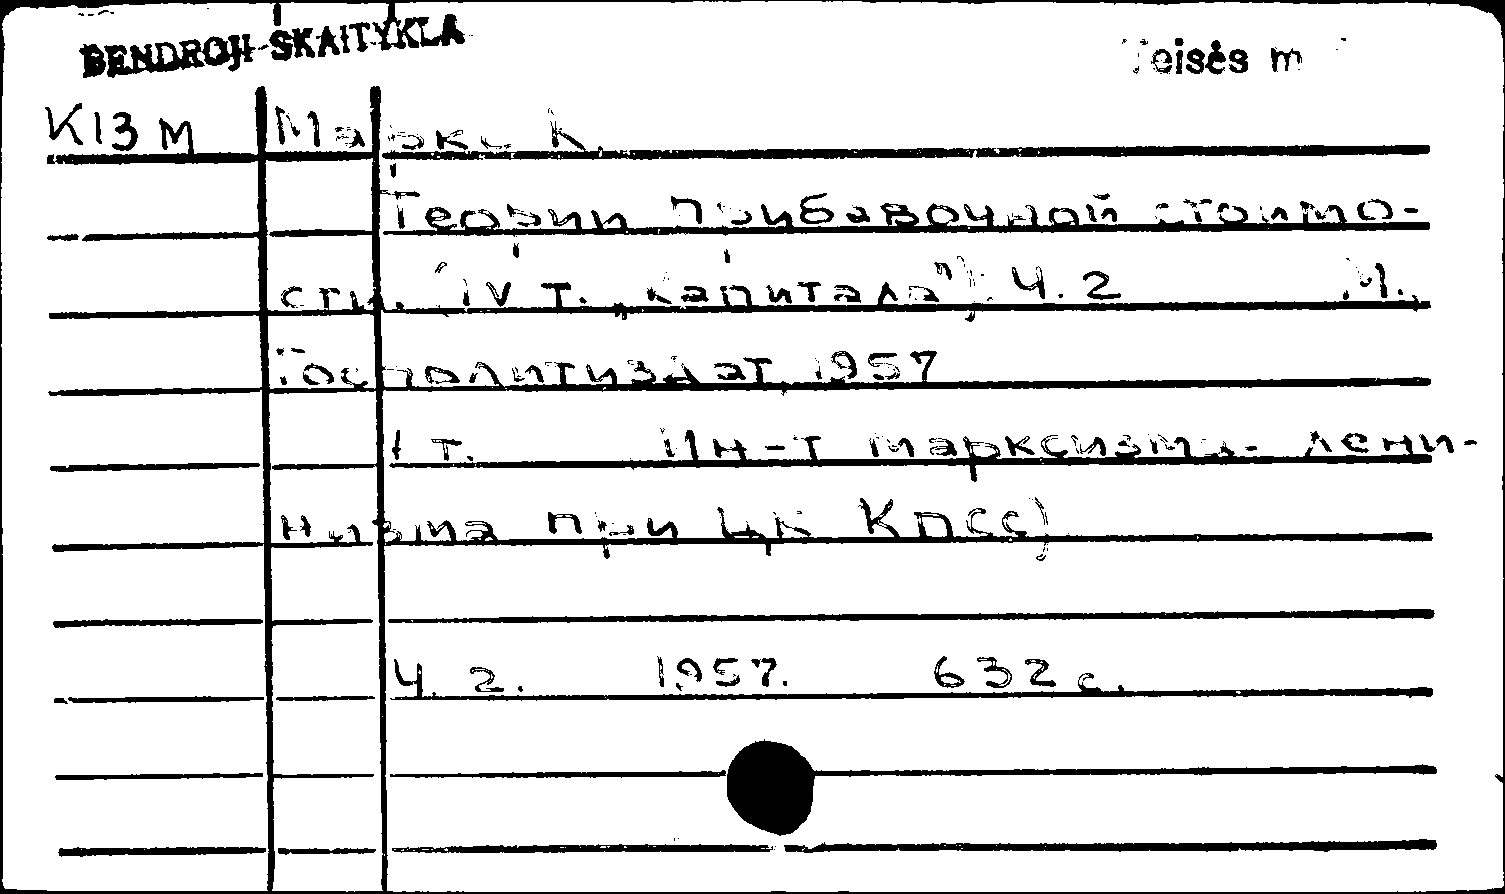 BENDROJI SKAITYKLA
Teisės m
K13 M Маркс К.
Теории прибавочной стоимо-
сти. (IV т. „Капитала"). Ч. 2 М.,
Госполитиздат, 1957
1 т. Ин-т марксизма-лени-
низма при ЦК КПСС)
Ч. 2. 1957. 632 с.